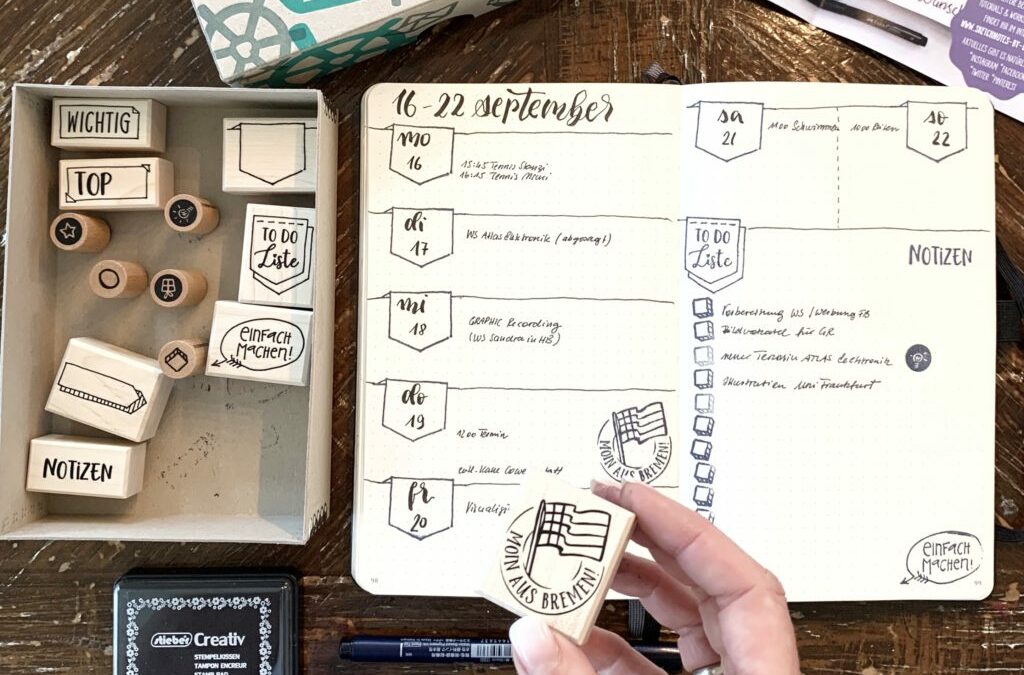 16-22 september
mo
16
15:45 Tennis
16:15 Tennis
di
17
WS Atlas Elektronik (abgesagt)
mi
18
GRAPHIC Recording
(WS Sandra in HB)
do
19
12:00 Termin
MOIN AUS BREMEN!
fr
20
sa
21
11:00 Schwimmen
so
22
TO DO
Liste
NOTIZEN
Vorbereitung WS / Werbung FB
Bildvokabel für GR
neuer Termin ATLAS Elektronik
Illustration Uni Frankfurt
EINFACH
MACHEN!
98
99
WICHTIG
TOP
TO DO
Liste
EINFACH
MACHEN!
NOTIZEN
MOIN AUS BREMEN!
Stieber's Creativ
STEMPELKISSEN
TAMPON ENCREUR
STAMP PAD
TUTORIALS &
FINDET IHR IM
WWW.SKETCHNOTES-BY-
AKTUELLES GIBT ES
*INSTAGRAM *FACEBOOK
*TWITTER *PINTEREST